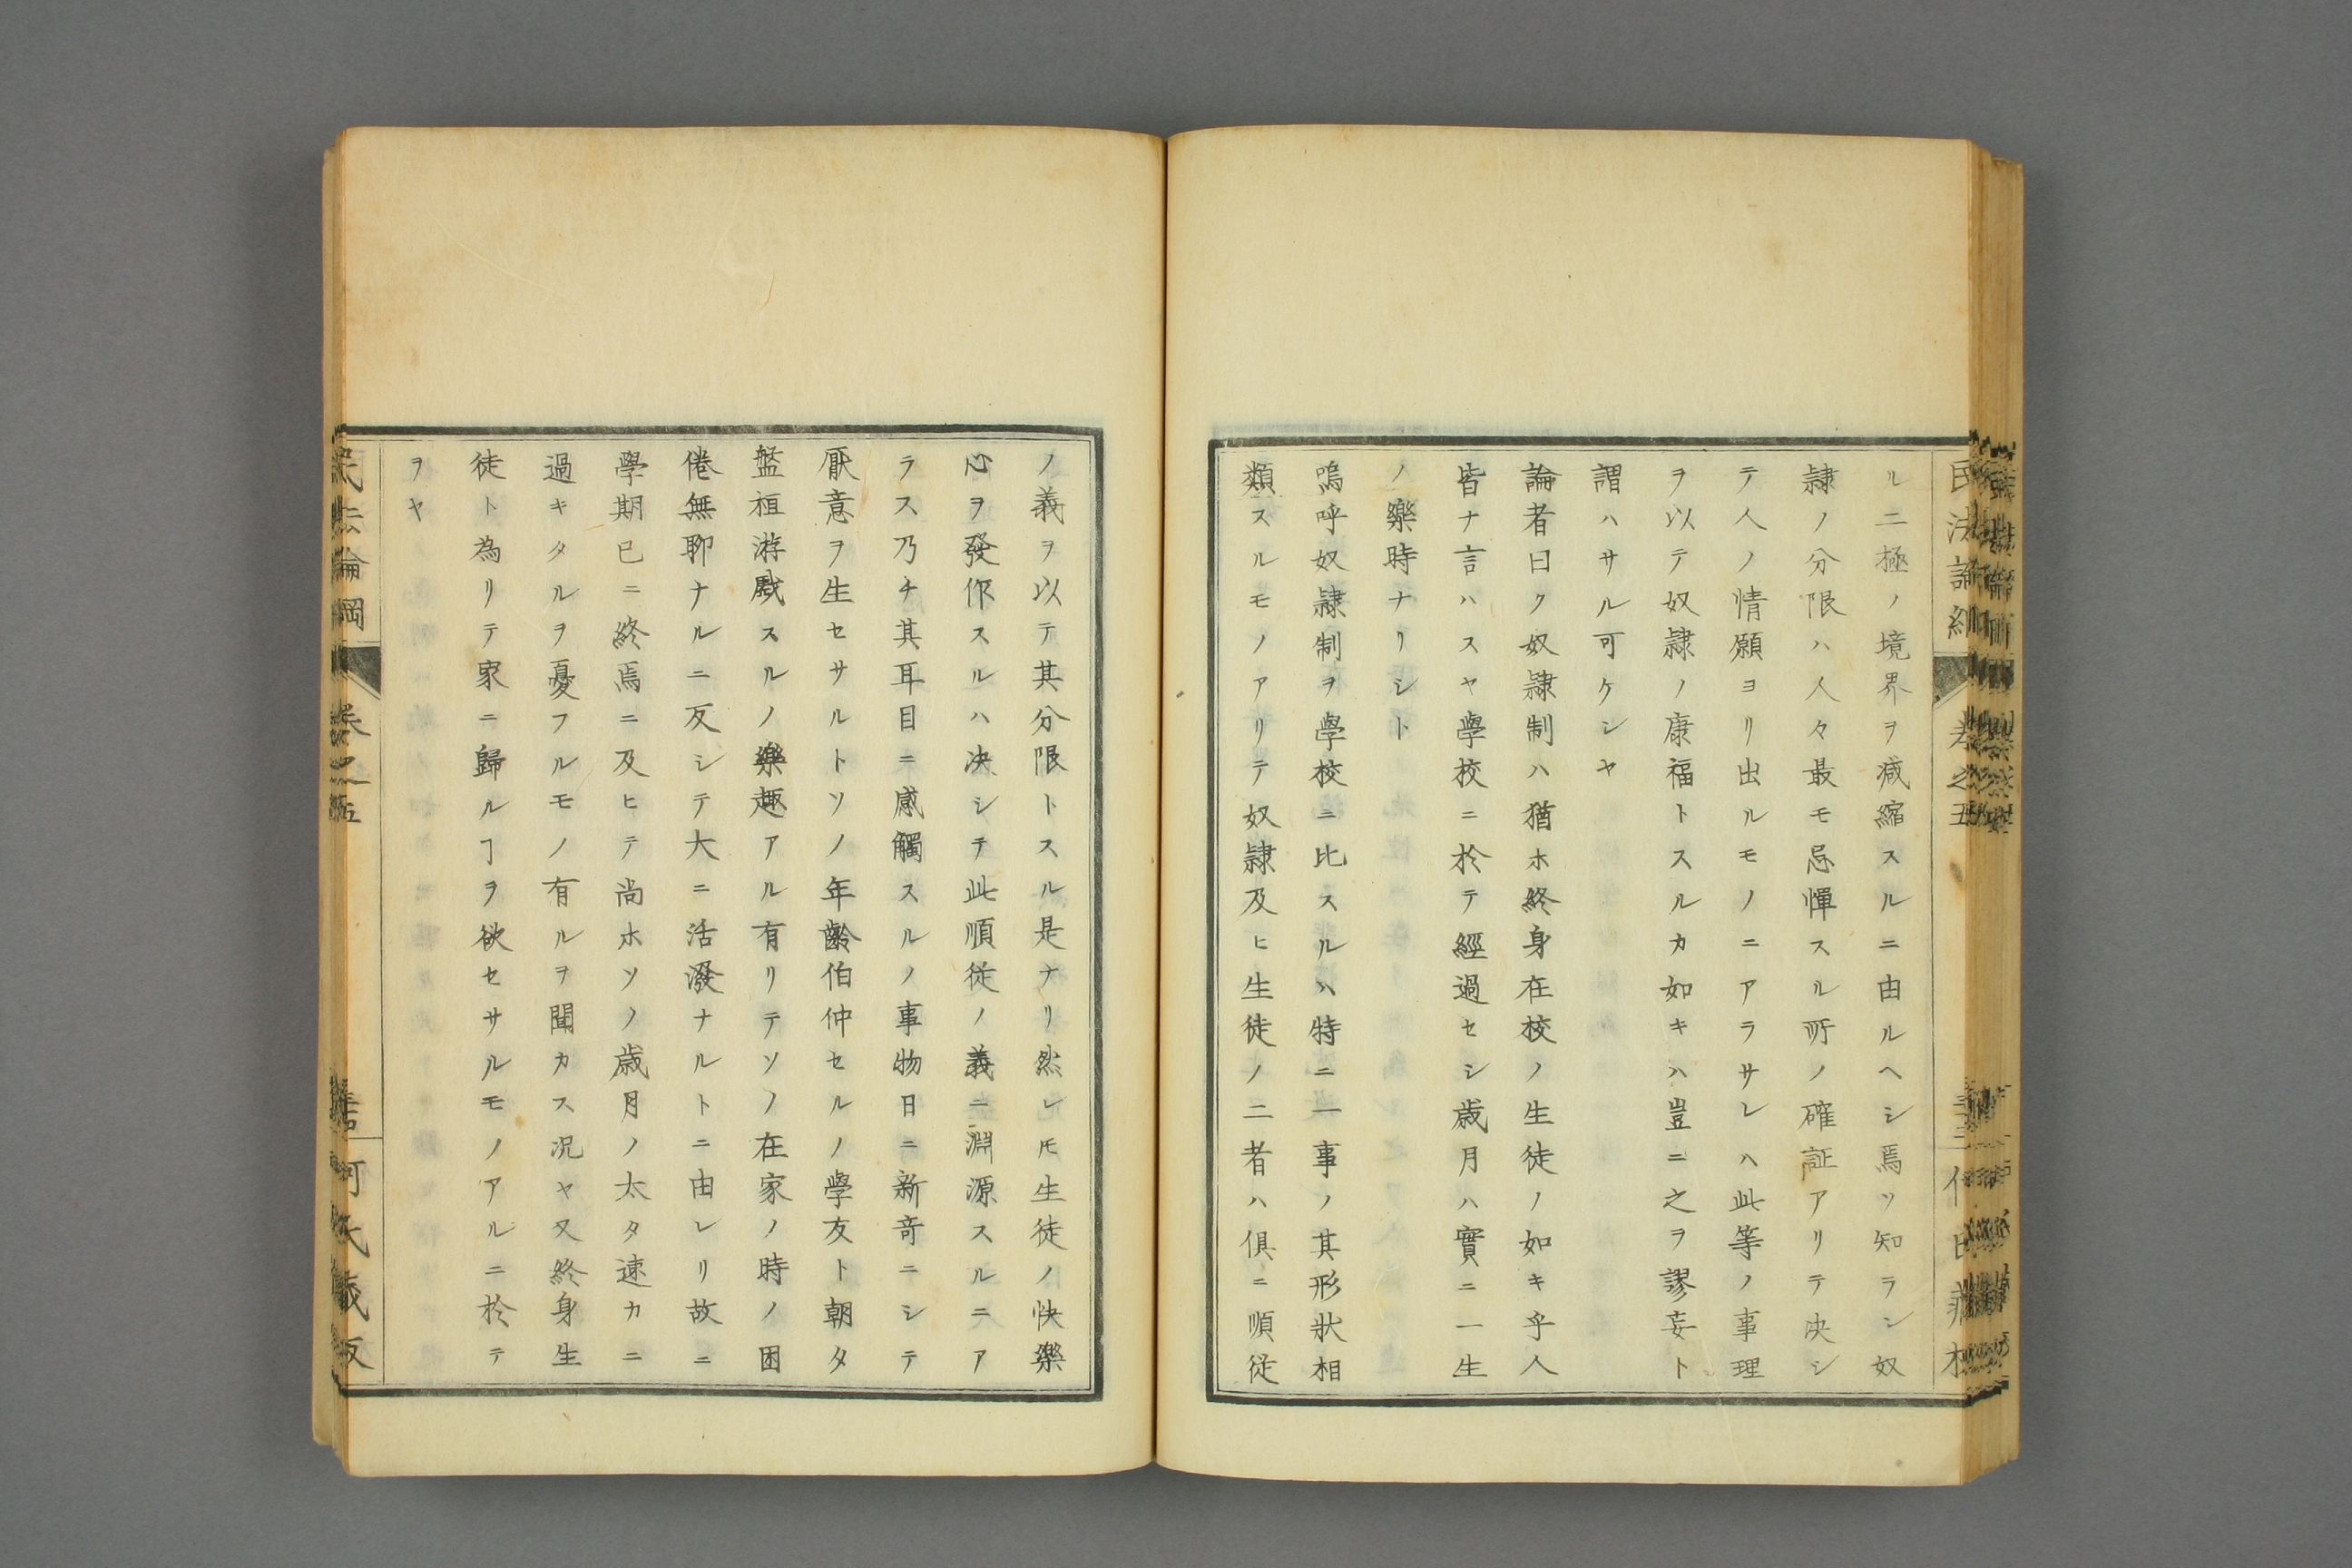 ル二極ノ境界ヲ減縮スルニ由ルヘシ焉ソ知ラン奴
隷ノ分限ハ人々最モ忌憚スル所ノ確証アリテ决シ
テ人ノ情願ヨリ出ルモノニアラサレハ此等ノ事理
ヲ以テ奴隷ノ康福トスルカ如キハ豈ニ之ヲ謬妄ト
謂ハサル可ケンヤ
論者曰ク奴隷制ハ猶ホ終身在校ノ生徒ノ如キ乎人
皆ナ言ハスヤ學校ニ於テ經過セシ歳月ハ實ニ一生
ノ樂時ナリシト
嗚呼奴隷制ヲ學校ニ比スルハ特ニ一事ノ其形狀相
類スルモノアリテ奴隷及ヒ生徒ノ二者ハ俱ニ順従
ノ義ヲ以テ其分限トスル是ナリ然レ𪜈生徒ノ快樂
心ヲ發作スルハ决シテ此順従ノ義ニ淵源スルニア
ラス乃チ其耳目ニ感觸スルノ事物日ニ新奇ニシテ
厭意ヲ生セサルトソノ年齡伯仲セルノ學友ト朝タ
盤桓游戲スルノ樂趣アル有リテソノ在家ノ時ノ困
倦無聊ナルニ反シテ大ニ活潑ナルトニ由レリ故ニ
學期已ニ終焉ニ及ヒテ尚ホソノ歳月ノ太タ速カニ
過キタルヲ憂フルモノ有ルヲ聞カス况ヤ又終身生
徒ト為リテ家ニ歸ルヿヲ欲セサルモノアルニ於テ
ヲヤ
民法論綱 卷之五 何氏蔵版